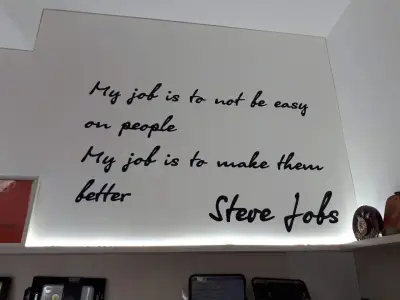 My job is to not be easy
on people
My job is to make them
better
Steve Jobs